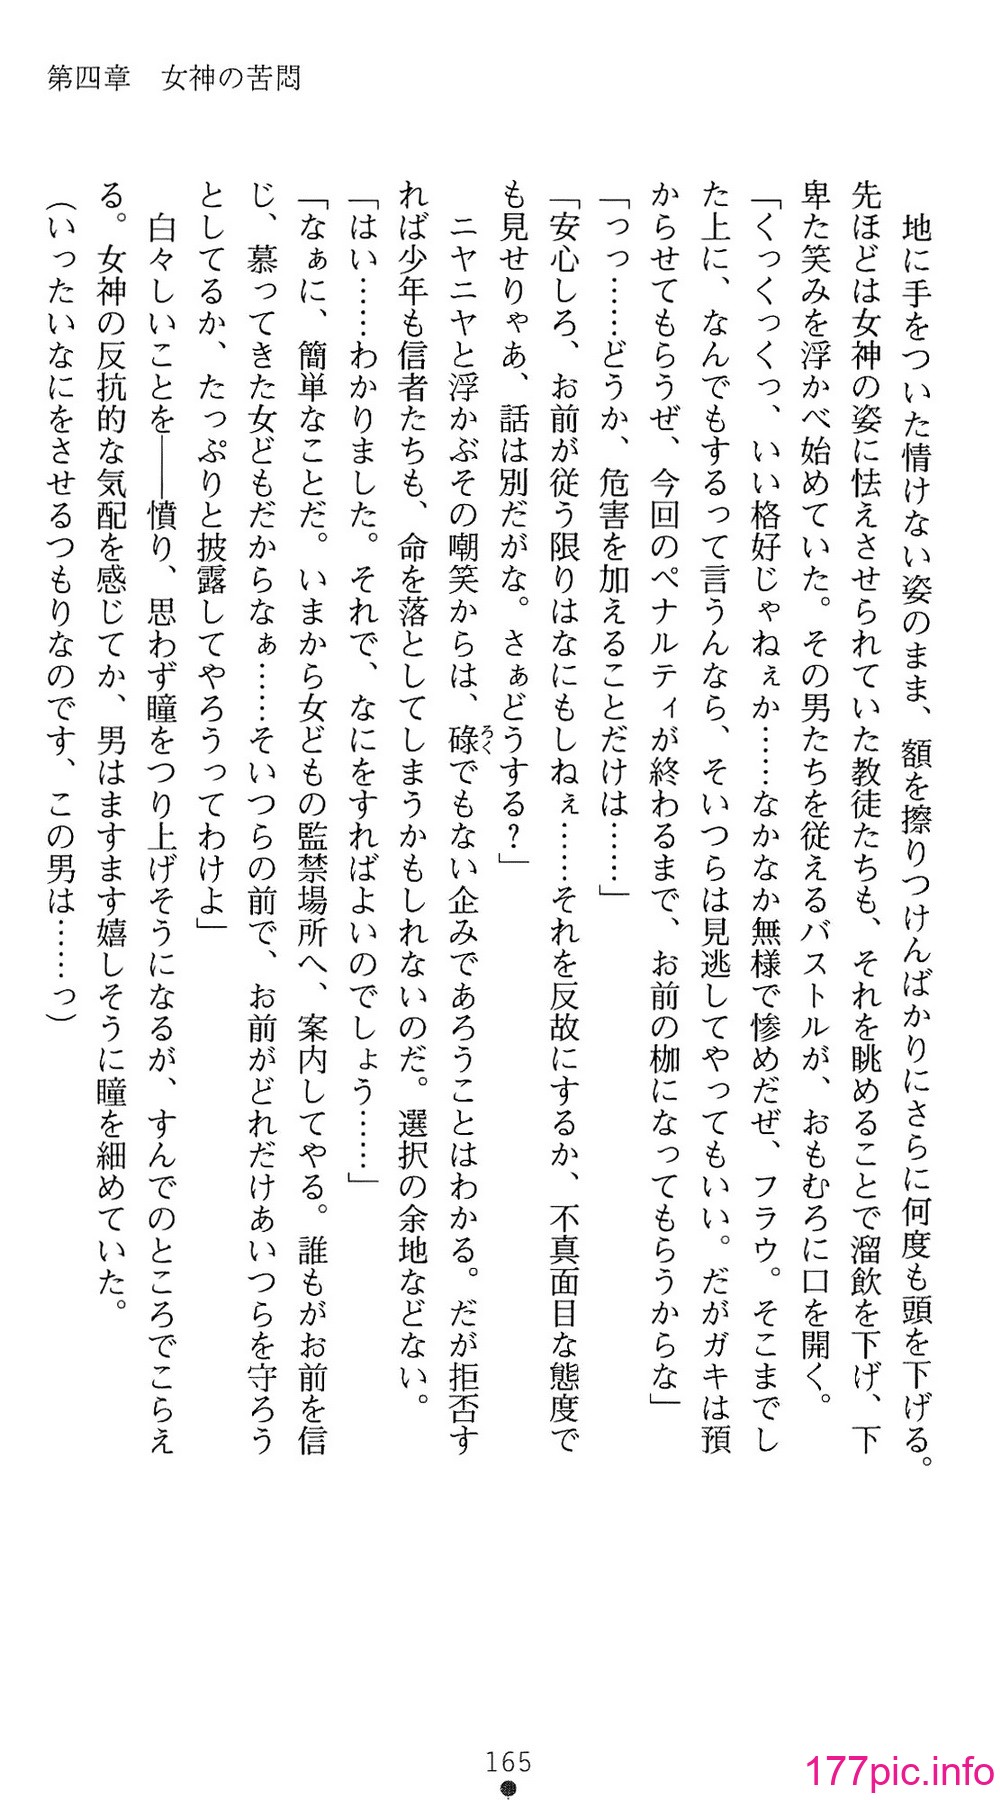 第四章　女神の苦悶
　地に手をついた情けない姿のまま、額を擦りつけんばかりにさらに何度も頭を下げる。
先ほどは女神の姿に怯えさせられていた教徒たちも、それを眺めることで溜飲を下げ、下
卑た笑みを浮かべ始めていた。その男たちを従えるバストルが、おもむろに口を開く。
「くっくっくっ、いい格好じゃねぇか……なかなか無様で惨めだぜ、フラウ。そこまでし
た上に、なんでもするって言うんなら、そいつらは見逃してやってもいい。だがガキは預
からせてもらうぜ、今回のペナルティが終わるまで、お前の枷になってもらうからな」
「っっ……どうか、危害を加えることだけは……」
「安心しろ、お前が従う限りはなにもしねぇ……それを反故にするか、不真面目な態度で
も見せりゃあ、話は別だがな。さぁどうする？」
　ニヤニヤと浮かぶその嘲笑からは、碌でもない企みであろうことはわかる。だが拒否す
れば少年も信者たちも、命を落としてしまうかもしれないのだ。選択の余地などない。
「はい……わかりました。それで、なにをすればよいのでしょう……」
「なぁに、簡単なことだ。いまから女どもの監禁場所へ、案内してやる。誰もがお前を信
じ、慕ってきた女どもだからなぁ……そいつらの前で、お前がどれだけあいつらを守ろう
としてるか、たっぷりと披露してやろうってわけよ」
　白々しいことを――憤り、思わず瞳をつり上げそうになるが、すんでのところでこらえ
る。女神の反抗的な気配を感じてか、男はますます嬉しそうに瞳を細めていた。
（いったいなにをさせるつもりなのです、この男は……っ）
ろく
165
177pic.info